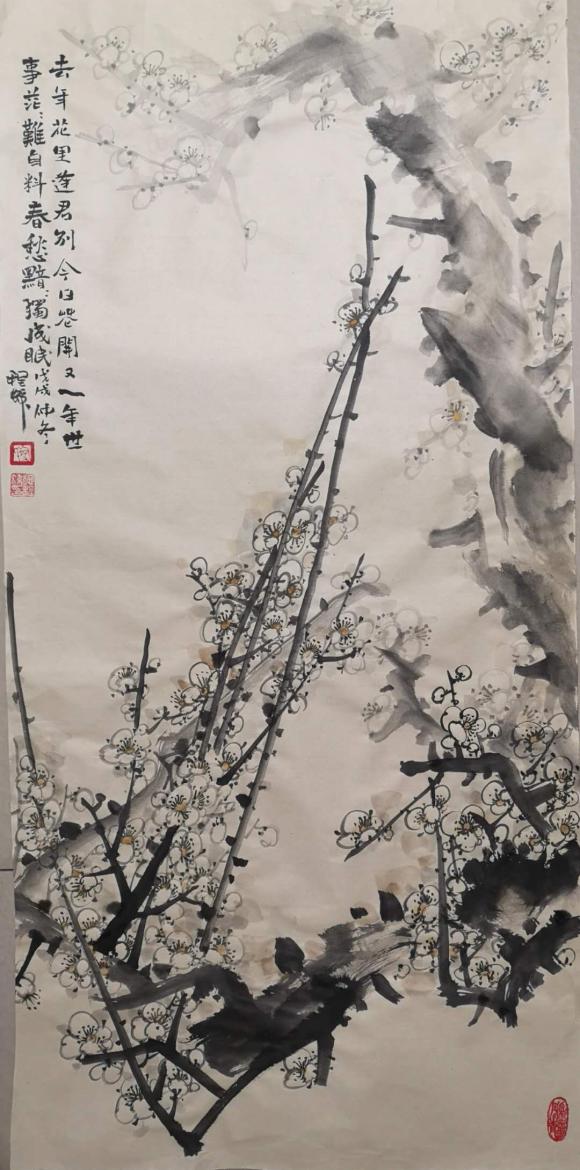 去年花里逢君别今日花開又一年世
事茫々難自料春愁黯々獨成眠戊戌仲冬